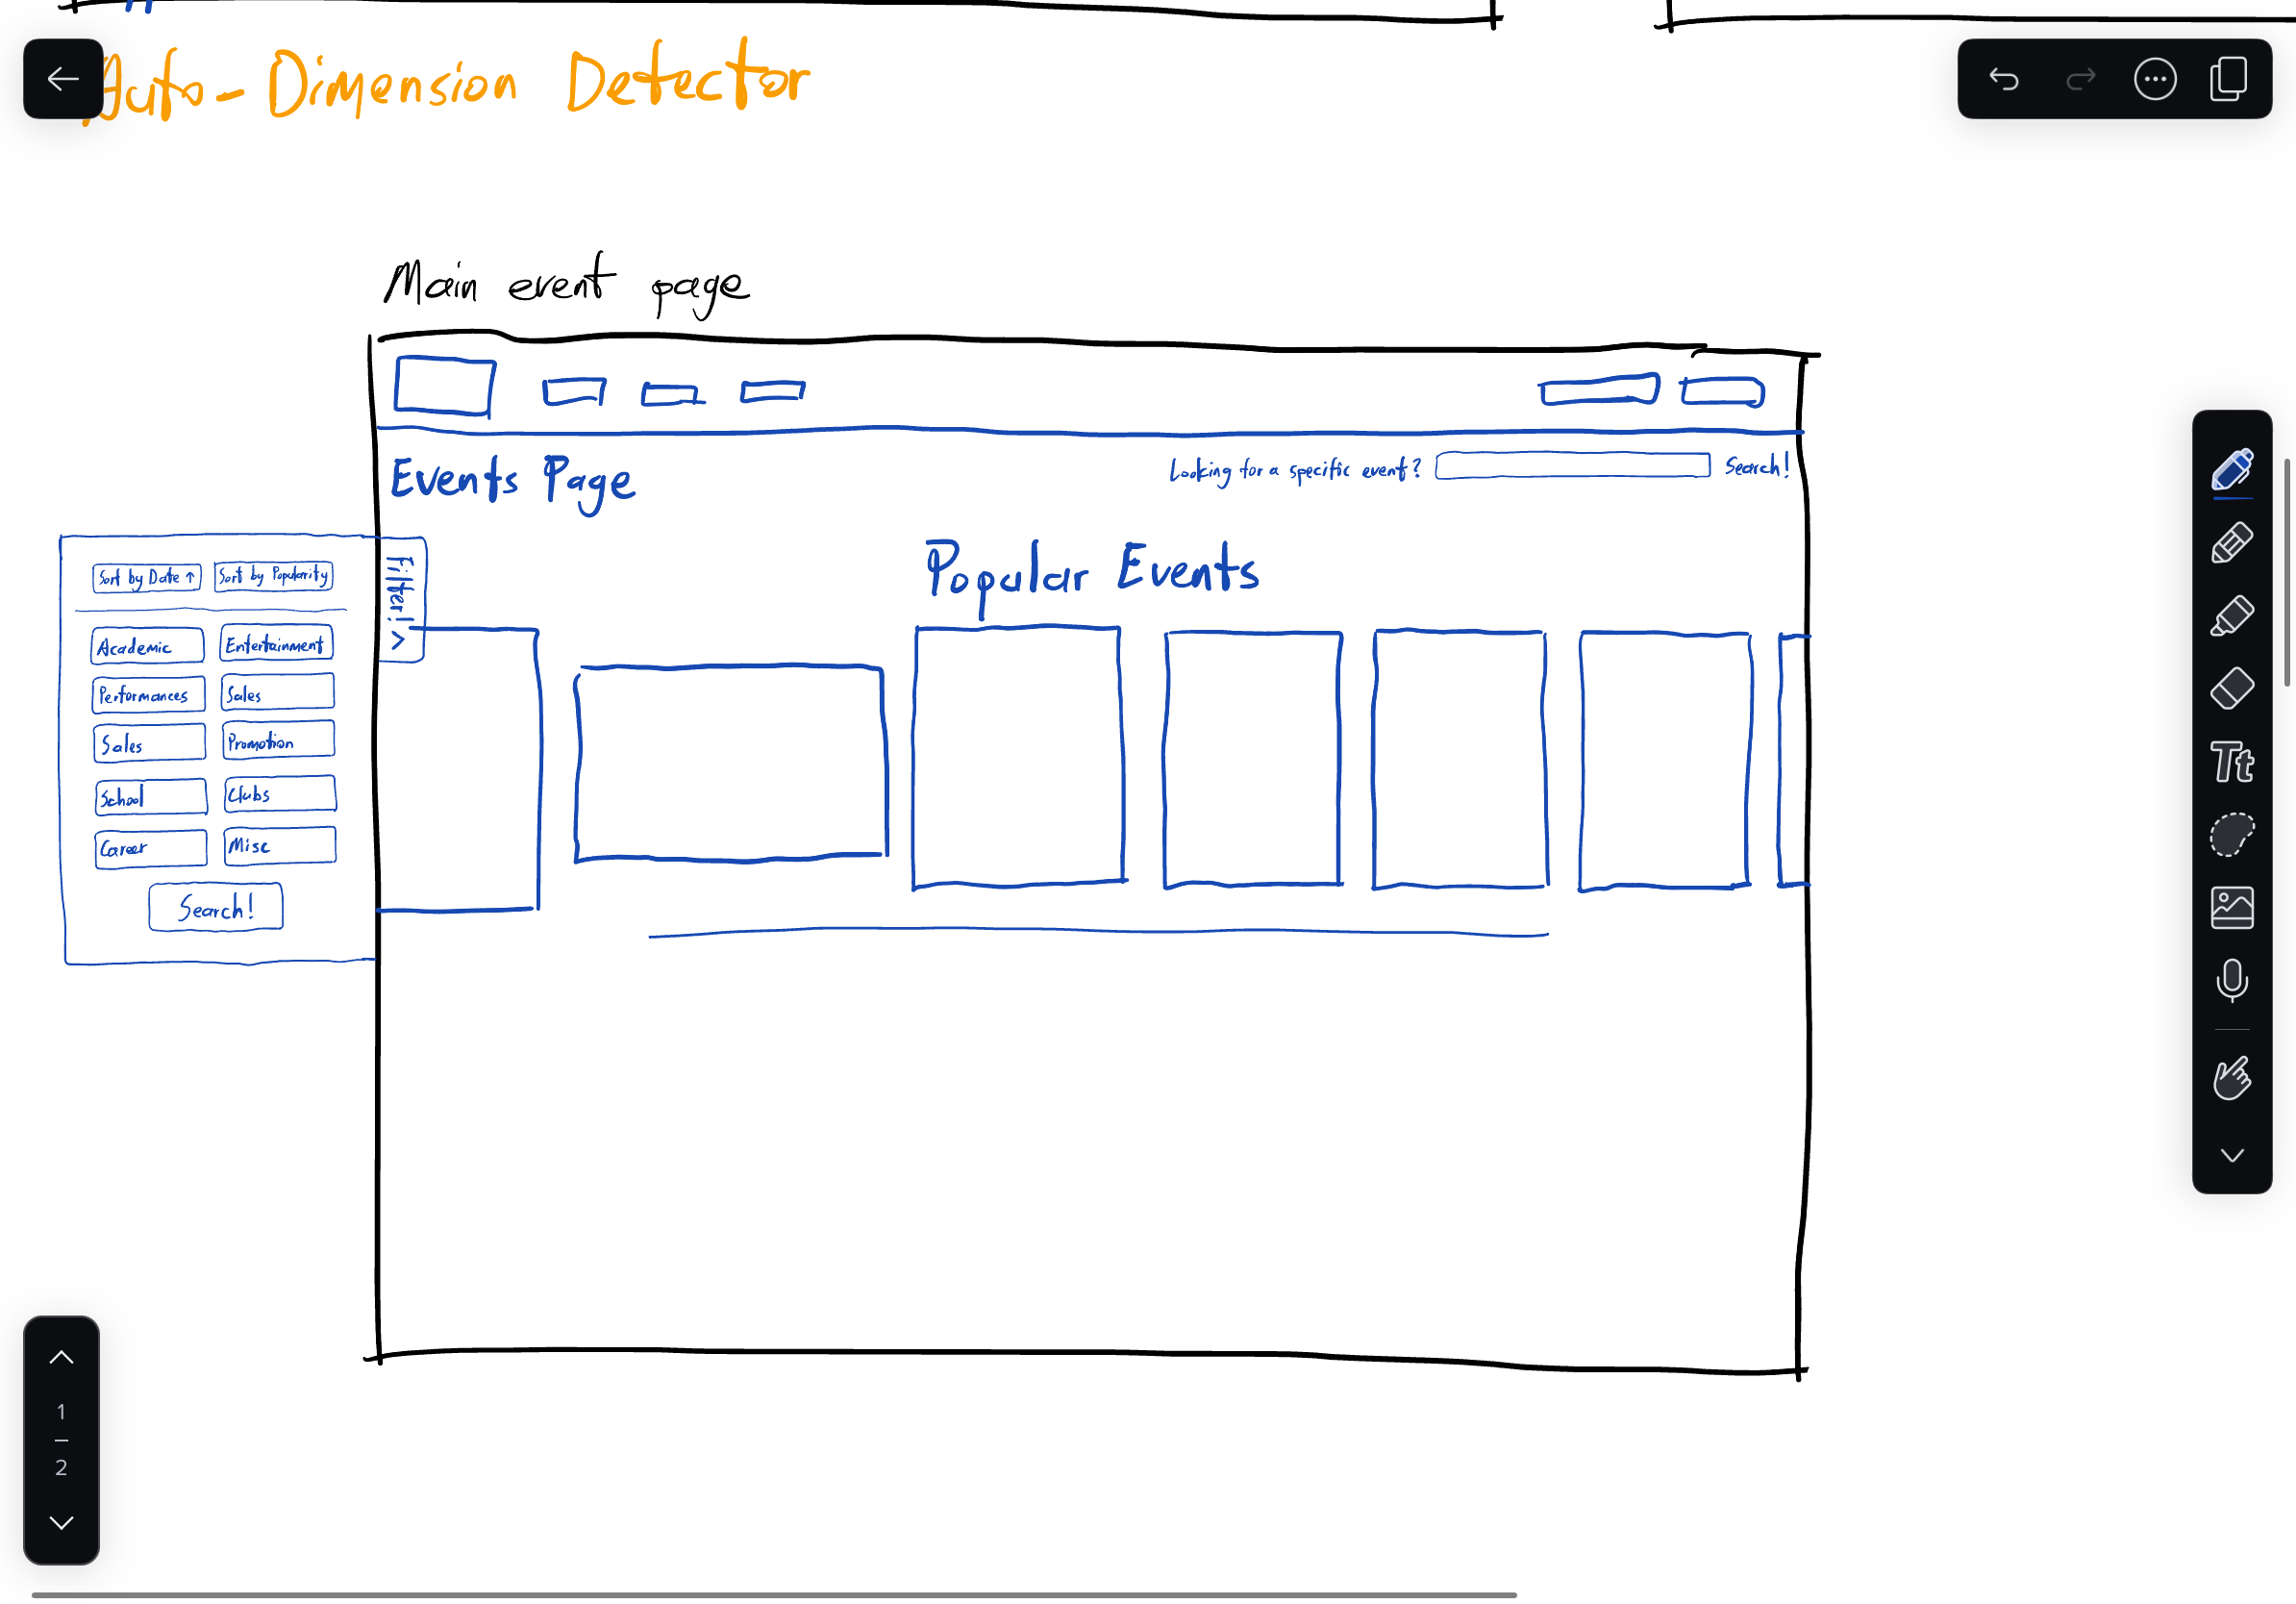 Auto-Dimension Detector
Main event page
Events Page
Looking for a specific event? Search!
Popular Events
Filter! >
Sort by Date ↑ Sort by Popularity
Academic Entertainment
Performances Sales
Sales Promotion
School Clubs
Career Misc
Search!
Tt
1
2